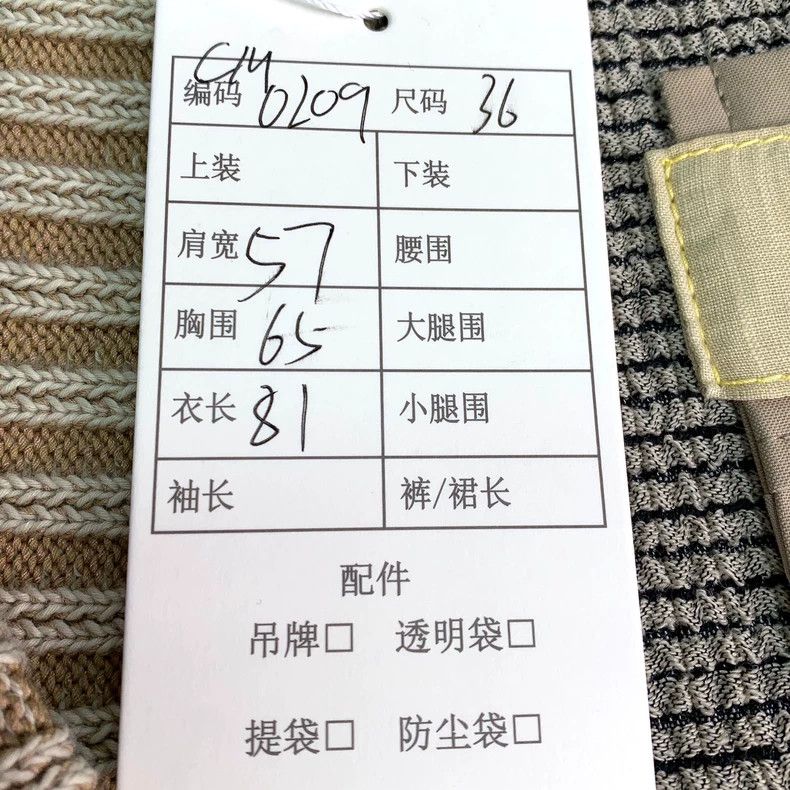 编码 CM0209 尺码 36
上装 下装
肩宽 57 腰围
胸围 65 大腿围
衣长 81 小腿围
袖长 裤/裙长
配件
吊牌□ 透明袋□
提袋□ 防尘袋□